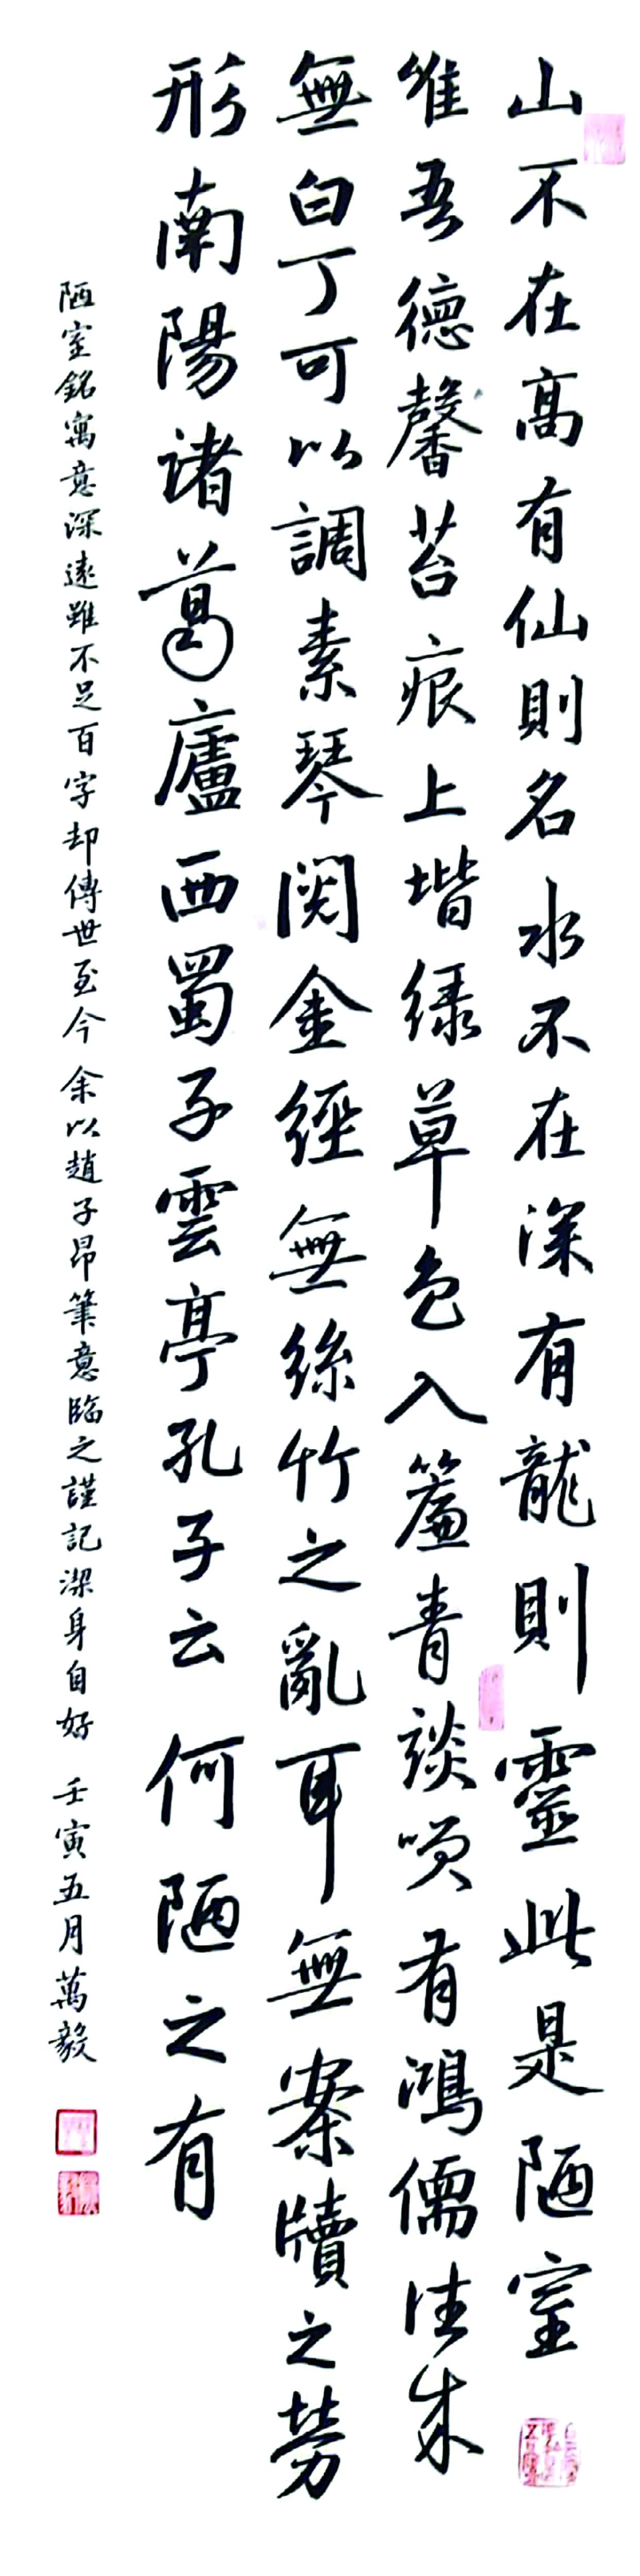 山不在高有仙則名水不在深有龍則靈此是陋室
惟吾德馨苔痕上堦綠草色入簾青談笑有鴻儒往來
無白丁可以調素琴閱金經無絲竹之亂耳無案牘之勞
形南陽諸葛廬西蜀子雲亭孔子云何陋之有
陋室銘寓意深遠雖不足百字却傳世至今余以趙子昂筆意臨之謹記潔身自好壬寅五月萬毅